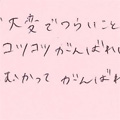 大変でつらいこと
コツコツがんばれ
むかって がんばれ